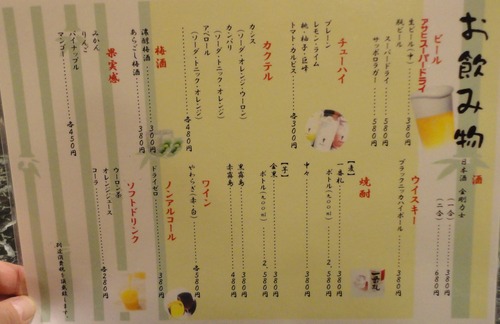 お飲み物
ビール
アサヒスーパードライ
生ビール(中) 380円
瓶ビール
スーパードライ 580円
サッポロラガー 580円
チューハイ
プレーン
レモン・ライム
桃・柚子・巨峰
トマト・カルピス 各300円
カクテル
カシス
(ソーダ・オレンジ・ウーロン)
カンパリ
(ソーダ・トニック・オレンジ)
アペロール
(ソーダ・トニック・オレンジ)
各480円
梅酒
濃醇梅酒 300円
あらごし梅酒 380円
果実感
みかん
りんご
パイナップル
マンゴー 各450円
酒
日本酒 金剛力士
(一合) 380円
(二合) 680円
ウイスキー
ブラックニッカハイボール 380円
焼酎
【麦】
一番札 380円
ボトル(900ml) 2,580円
中々 380円
【芋】
金黒 380円
ボトル(900ml) 2,580円
黒霧島 380円
赤霧島 480円
ワイン
やわらぎ(赤・白) 各580円
ノンアルコール
ドライゼロ 380円
ソフトドリンク
ウーロン茶
オレンジジュース
コーラ 各280円
別途消費税を頂戴致します。